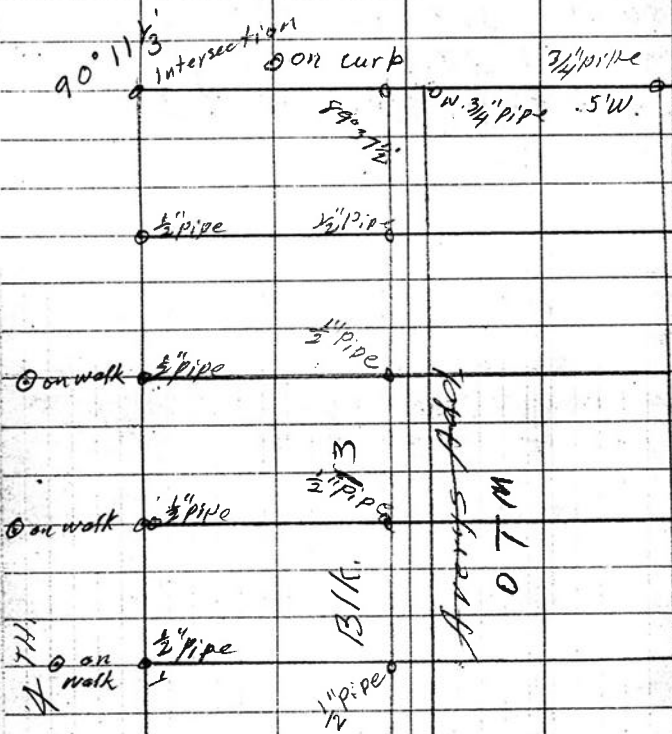 90° 11 1/3'
Intersection
on curb
3/4" pipe
N. 3/4" pipe
.5' W.
89° 37 1/2'
1/2" pipe
1/2" pipe
1/2" pipe
on walk
1/2" pipe
1/2" pipe
on walk
1/2" pipe
Blk. 13
Addt
OTM
4 TH.
on
walk
1/2" pipe
1
1/2" pipe